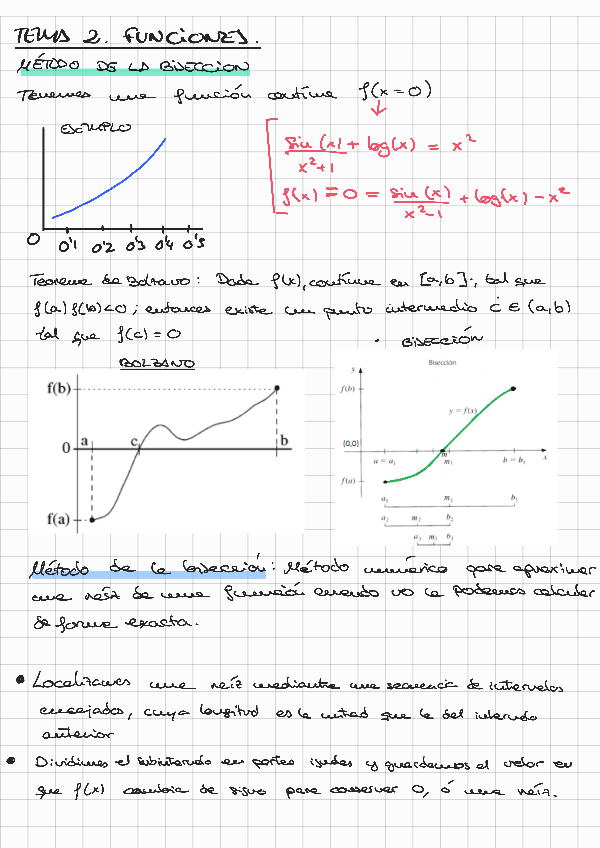 TEMA 2. FUNCIONES.
MÉTODO DE LA BISECCION
Tenemos una función continua f(x=0)
EJEMPLO
sin(x) + log(x) = x²
x²+1
f(x) = 0 = sin(x) + log(x) - x²
x²-1
0 0'1 0'2 0'3 0'4 0'5
Teorema de Bolzano: Dada f(x), continua en [a,b], tal que
f(a) f(b)<0; entonces existe un punto intermedio c ∈ (a,b)
tal que f(c)=0
BISECCIÓN
BOLZANO
f(b)
0 a c b
f(a)
Bisección
y
f(b)
y = f(x)
(0,0)
m
a = a₁ m₁ b = b₁ x
f(a)
a₁ m₁ b₁
a₂ m₂ b₂
a₃ m₃ b₃
Método de la bisección: Método numérico para aproximar
una raíz de una función cuando no la podemos calcular
de forma exacta.
• Localizamos una raíz mediante una secuencia de intervalos
encajados, cuya longitud es la mitad que la del intervalo
anterior
• Dividimos el subintervalo en partes iguales y guardamos el valor en
que f(x) cambia de signo para conservar 0, ó una raíz.